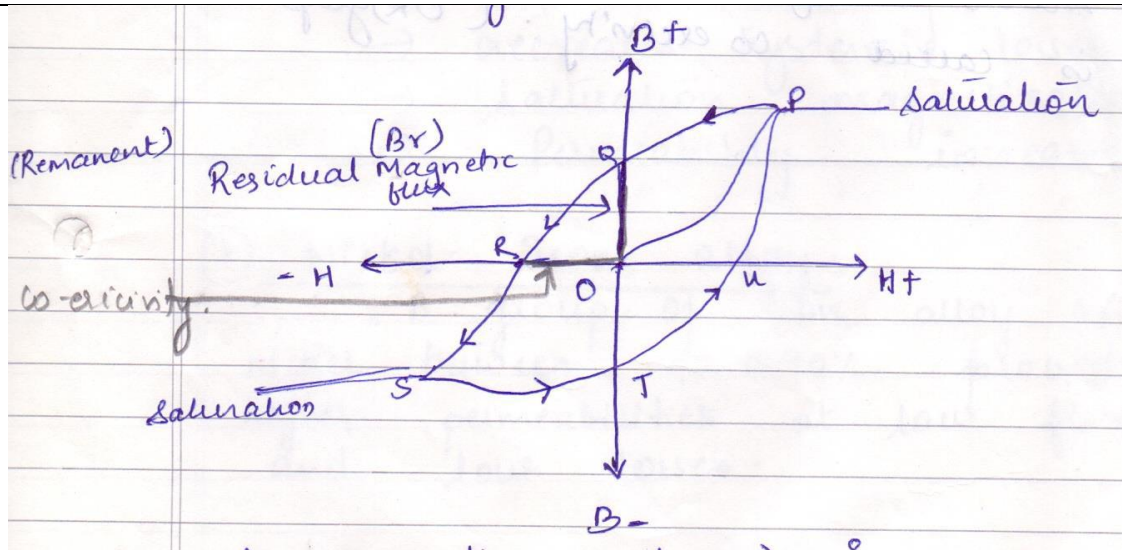 B+
P
Saturation
(Br)
(Remanent)
Q
Residual Magnetic
flux
R
- H
O
u
H+
Co-ericivity.
S
T
Saturation
B-